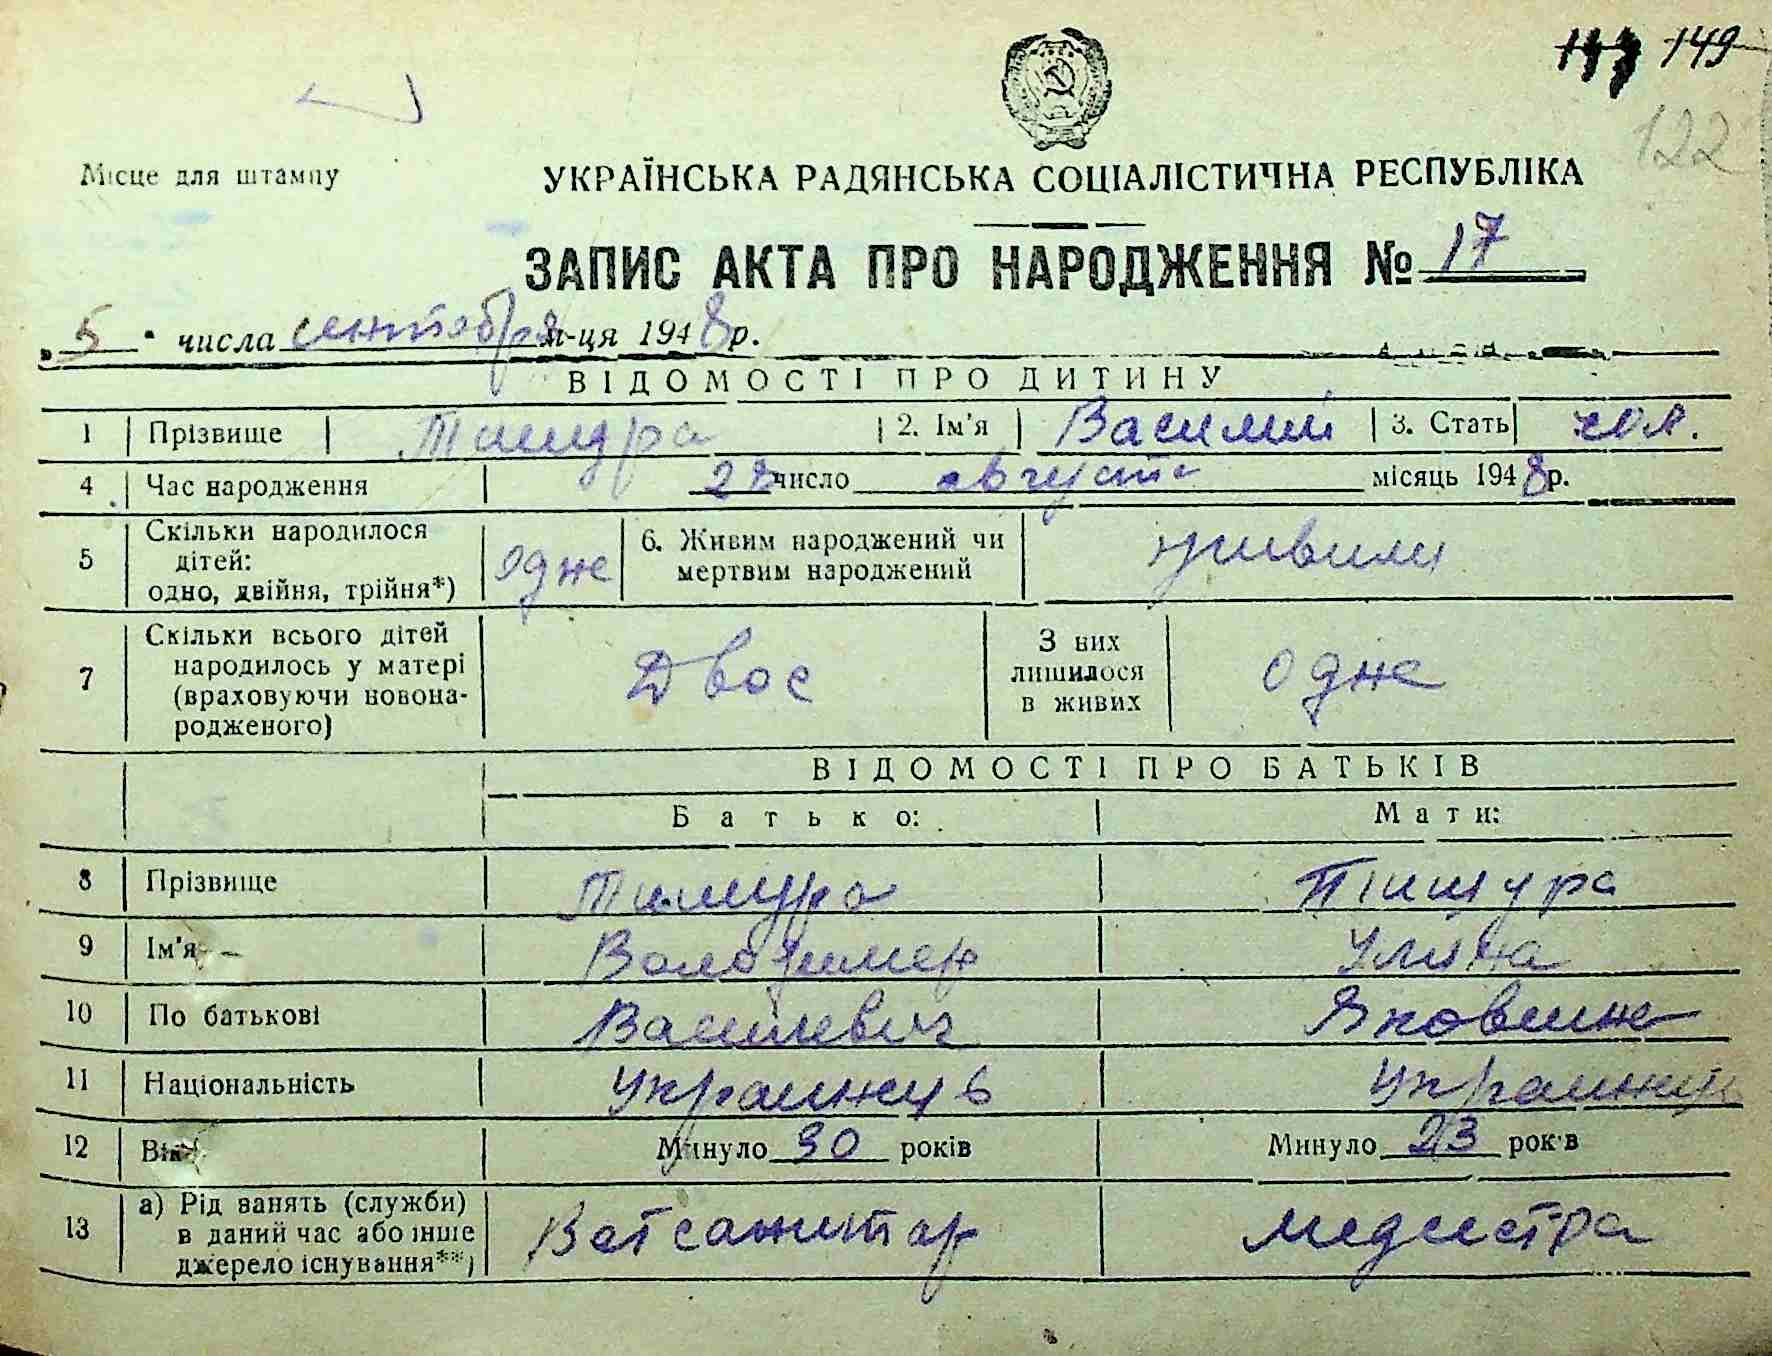 149
122
Місце для штампу
УКРАЇНСЬКА РАДЯНСЬКА СОЦІАЛІСТИЧНА РЕСПУБЛІКА
ЗАПИС АКТА ПРО НАРОДЖЕННЯ № 17
„ 5 " числа сентября м-ця 1948 р.
ВІДОМОСТІ ПРО ДИТИНУ
1 Прізвище 2. Ім'я Василий 3. Стать чол.
4 Час народження число августа місяць 1948 р.
5 Скільки народилося дітей: одно, двійня, трійня*) одне 6. Живим народжений чи мертвим народжений живим
7 Скільки всього дітей народилось у матері (враховуючи новона-родженого) Двоє З них лишилося в живих одне
ВІДОМОСТІ ПРО БАТЬКІВ
Батько: Мати:
8 Прізвище Пищура
9 Ім'я Володимер Уляна
10 По батькові Василевич Яковлівна
11 Національність Украинець Украинка
12 Вік Минуло 30 років Минуло 23 років
13 а) Рід занять (служби) в даний час або інше джерело існування**) Ветсанитар медсестра